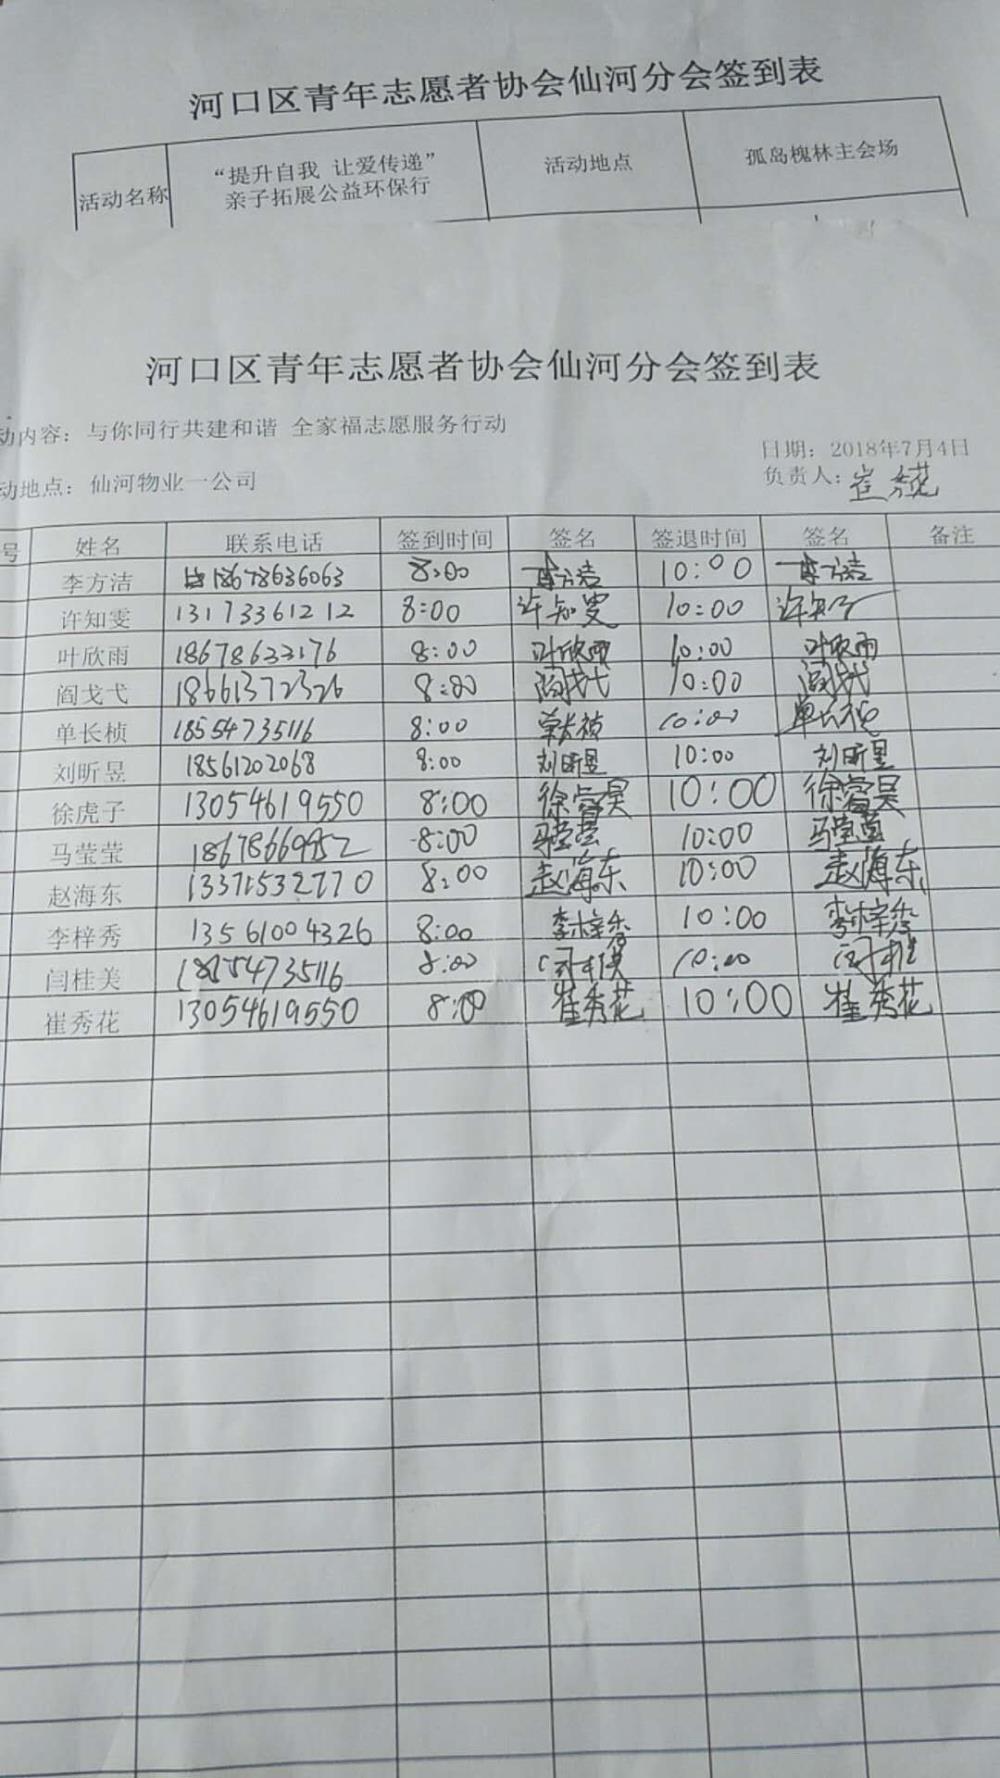 河口区青年志愿者协会仙河分会签到表
活动名称 “提升自我 让爱传递” 亲子拓展公益环保行 活动地点 孤岛槐林主会场
河口区青年志愿者协会仙河分会签到表
动内容：与你同行共建和谐 全家福志愿服务行动
日期：2018年7月4日
动地点：仙河物业一公司
负责人：崔秀花
号 姓名 联系电话 签到时间 签名 签退时间 签名 备注
李方洁 18678636063 8:00 李方洁 10:00 李方洁
许知雯 13173361212 8:00 许知雯 10:00 许知
叶欣雨 18678633176 8:00 叶欣雨 10:00 叶欣雨
阎戈弋 18661372326 8:00 阎戈弋 10:00 阎戈弋
单长桢 18554735116 8:00 单长桢 10:00 单长桢
刘昕昱 18561202068 8:00 刘昕昱 10:00 刘昕昱
徐虎子 13054619550 8:00 徐睿昊 10:00 徐睿昊
马莹莹 8:00 马莹莹 10:00 马莹莹
赵海东 13371532770 8:00 赵海东 10:00 赵海东
李梓秀 13561004326 8:00 李梓秀 10:00 李梓秀
闫桂美 18554735116 8:00 10:00
崔秀花 13054619550 8:00 崔秀花 10:00 崔秀花